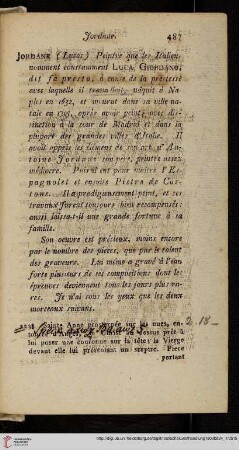 Jordane. 487
JORDANE (Lucas) Peintre que les Italiens
nomment communément LUCA GIORDANO,
dit fa presto, à cause de la prestesse
avec laquelle il travailloit, naquit à Na-
ples en 1632, et mourut dans sa ville na-
tale en 1705, après avoir peint avec dis-
tinction à la cour de Madrid et dans la
plupart des grandes villes d'Italie. Il
avoit appris les élémens de son art d'An-
toine Jordane son père, peintre assez
médiocre. Puis il eut pour maître l'Es-
pagnolet et ensuite Pietre de Cor-
tone. Il a prodigieusement peint, et ses
travaux furent toujours bien recompensés:
aussi laissa-t-il une grande fortune à sa
famille.
Son oeuvre est précieux, moins encore
par le nombre des pièces, que par le talent
des graveurs. Lui même a gravé à l'eau
forte plusieurs de ses compositions dont les
épreuves deviennent tous les jours plus ra-
res. Je n'ai sous les yeux que les deux
morceaux suivans.
Sainte Anne sur les nues, en-
tourée d'Anges, Christ ou Jesus prêt à
lui poser une couronne sur la tête; la Vierge
devant elle lui présentant un sceptre. Piece
portant
2.18